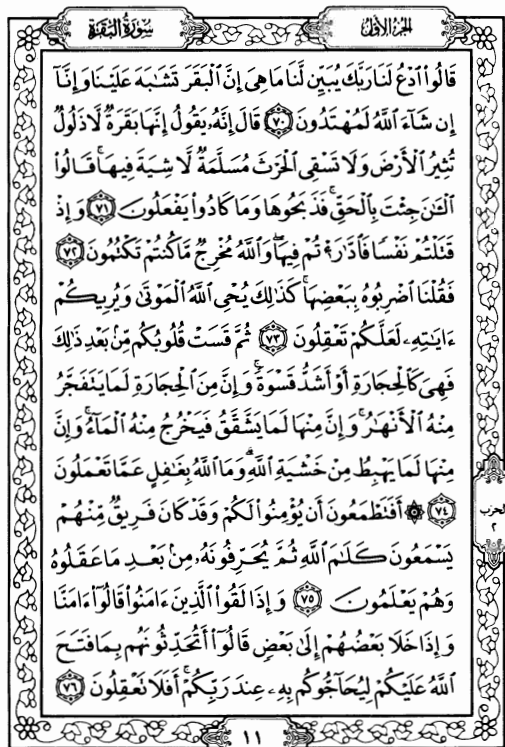 سورة البقرة الجزء الأول
قَالُوا۟ ٱدْعُ لَنَا رَبَّكَ يُبَيِّن لَّنَا مَا هِىَ إِنَّ ٱلْبَقَرَ تَشَٰبَهَ عَلَيْنَا وَإِنَّآ
إِن شَآءَ ٱللَّهُ لَمُهْتَدُونَ ٧٠ قَالَ إِنَّهُۥ يَقُولُ إِنَّهَا بَقَرَةٌ لَّا ذَلُولٌ
تُثِيرُ ٱلْأَرْضَ وَلَا تَسْقِى ٱلْحَرْثَ مُسَلَّمَةٌ لَّا شِيَةَ فِيهَا ۚ قَالُوا۟
ٱلْـَٰٔنَ جِئْتَ بِٱلْحَقِّ ۚ فَذَبَحُوهَا وَمَا كَادُوا۟ يَفْعَلُونَ ٧١ وَإِذْ
قَتَلْتُمْ نَفْسًا فَٱدَّٰرَْٰٔتُمْ فِيهَا ۖ وَٱللَّهُ مُخْرِجٌ مَّا كُنتُمْ تَكْتُمُونَ ٧٢
فَقُلْنَا ٱضْرِبُوهُ بِبَعْضِهَا ۚ كَذَٰلِكَ يُحْىِ ٱللَّهُ ٱلْمَوْتَىٰ وَيُرِيكُمْ
ءَايَٰتِهِۦ لَعَلَّكُمْ تَعْقِلُونَ ٧٣ ثُمَّ قَسَتْ قُلُوبُكُم مِّنۢ بَعْدِ ذَٰلِكَ
فَهِىَ كَٱلْحِجَارَةِ أَوْ أَشَدُّ قَسْوَةً ۚ وَإِنَّ مِنَ ٱلْحِجَارَةِ لَمَا يَتَفَجَّرُ
مِنْهُ ٱلْأَنْهَٰرُ ۚ وَإِنَّ مِنْهَا لَمَا يَشَّقَّقُ فَيَخْرُجُ مِنْهُ ٱلْمَآءُ ۚ وَإِنَّ
مِنْهَا لَمَا يَهْبِطُ مِنْ خَشْيَةِ ٱللَّهِ ۗ وَمَا ٱللَّهُ بِغَٰفِلٍ عَمَّا تَعْمَلُونَ
٧٤ ۞ أَفَتَطْمَعُونَ أَن يُؤْمِنُوا۟ لَكُمْ وَقَدْ كَانَ فَرِيقٌ مِّنْهُمْ
الحزب
٢
يَسْمَعُونَ كَلَٰمَ ٱللَّهِ ثُمَّ يُحَرِّفُونَهُۥ مِنۢ بَعْدِ مَا عَقَلُوهُ
وَهُمْ يَعْلَمُونَ ٧٥ وَإِذَا لَقُوا۟ ٱلَّذِينَ ءَامَنُوا۟ قَالُوٓا۟ ءَامَنَّا
وَإِذَا خَلَا بَعْضُهُمْ إِلَىٰ بَعْضٍ قَالُوٓا۟ أَتُحَدِّثُونَهُم بِمَا فَتَحَ
ٱللَّهُ عَلَيْكُمْ لِيُحَآجُّوكُم بِهِۦ عِندَ رَبِّكُمْ ۚ أَفَلَا تَعْقِلُونَ ٧٦
١١